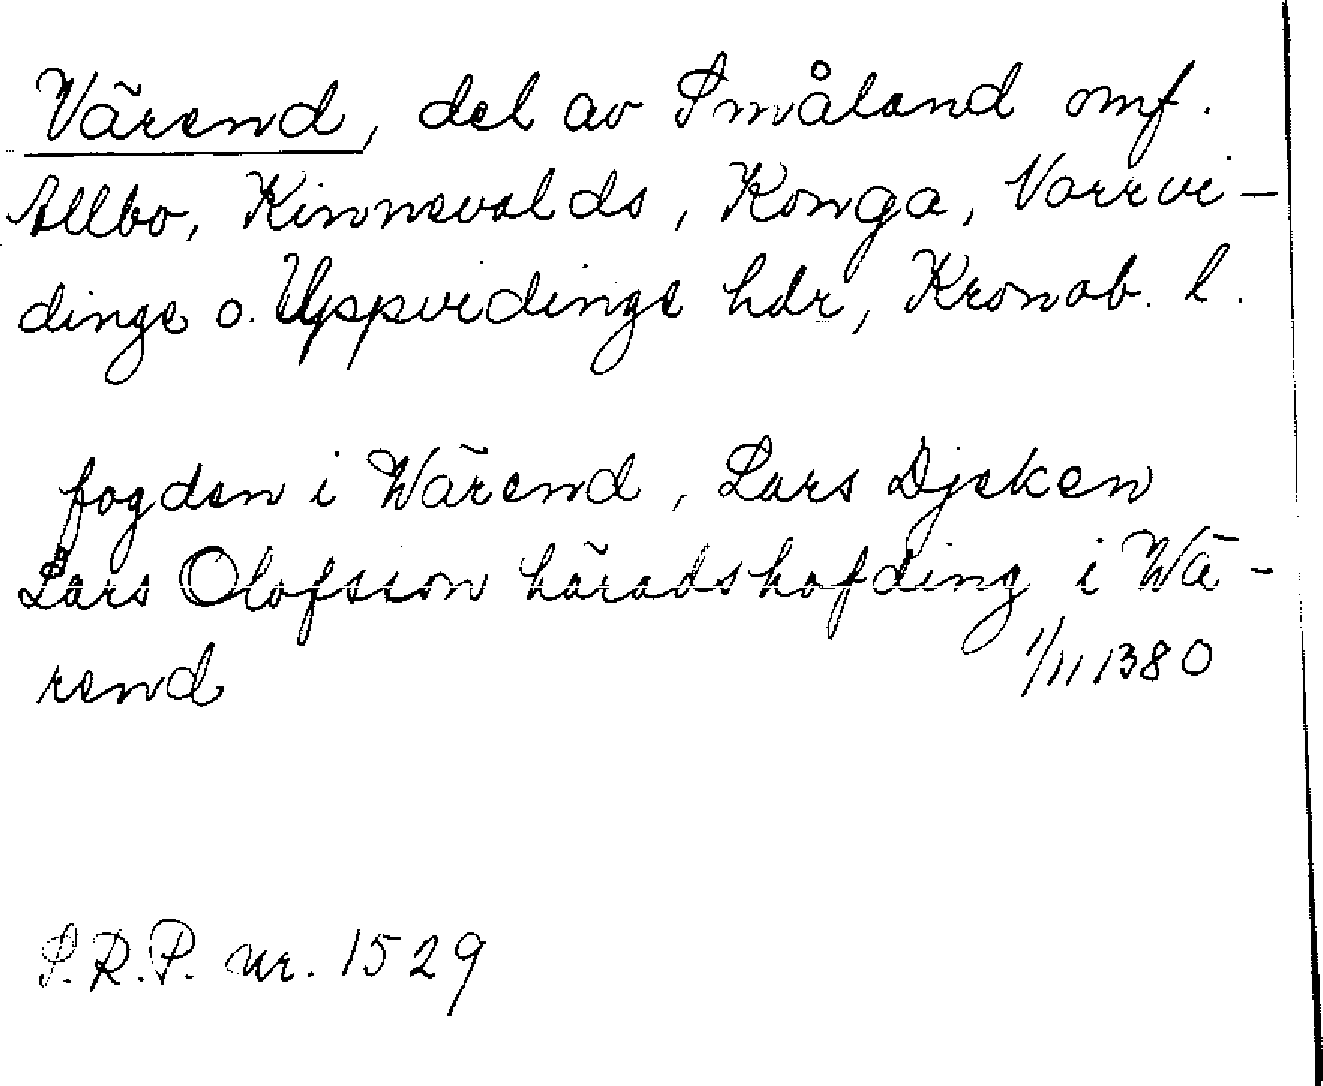 Värend, del av Småland omf.
Allbo, Kinnevalds, Konga, Norrvi-
dinge o. Uppvidinge hdr, Kronob. l.
fogden i Wärend, Lars Djeken
Lars Olofsson häradshofding i Wä-
rend 1/11 1380
S.R.P. nr. 1529